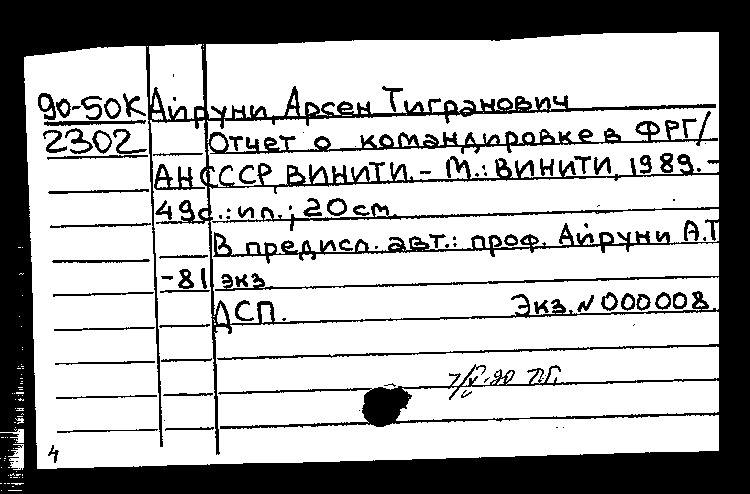 90-50К Айруни, Арсен Тигранович
2302 Отчет о командировке в ФРГ/
АН СССР, ВИНИТИ. - М.: ВИНИТИ, 1989. -
49с.: ил.; 20 см.
В предисл. авт.: проф. Айруни А.Т
-81 экз.
ДСП. Экз. N 000008.
7/V-90
4